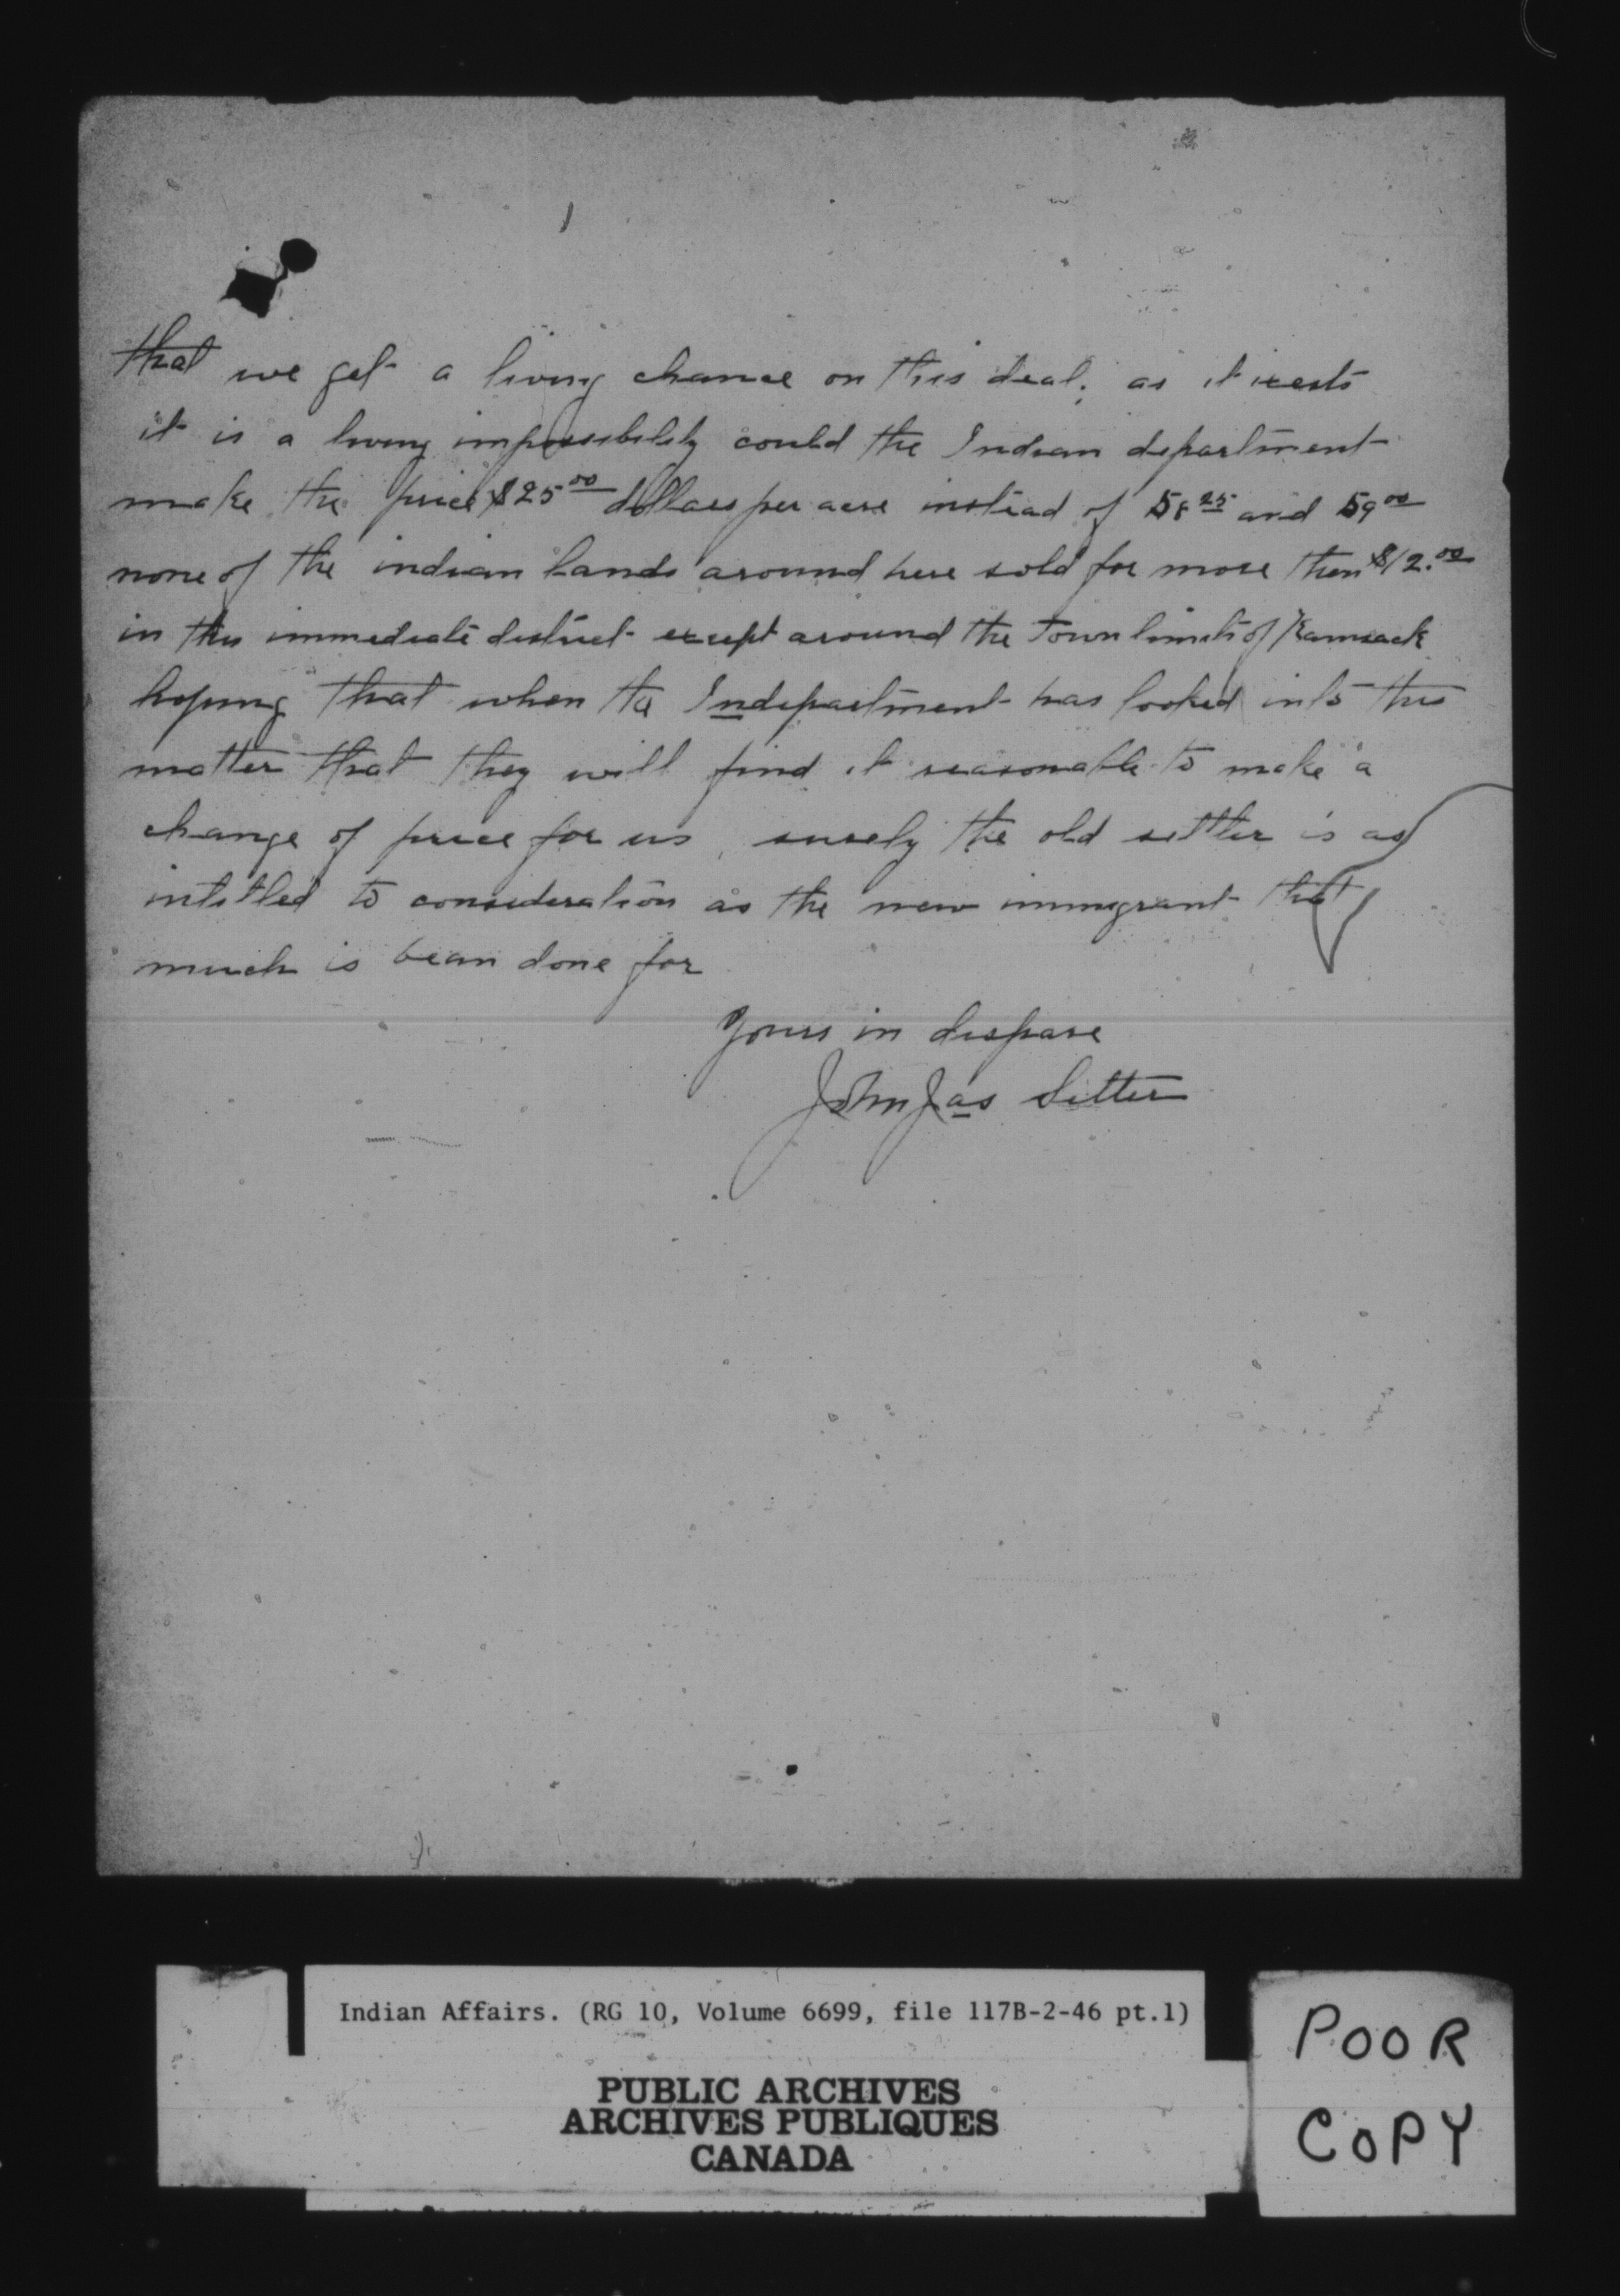 that we get a living chance on this deal; as it exests
it is a living impossibility could the Indian department
make the price $25.00 dollars per acre instead of 58.25 and 59.00
none of the indian lands around here sold for more then $12.00
in this immediate district except around the town limits of Kamsack
hoping that when the Indepartment has looked into this
matter that they will find it reasonable to make a
change of price for us, surely the old settler is as
intitled to consideration as the new immigrant that
much is bean done for
Yours in dispare
John Jas Sitter
Indian Affairs. (RG 10, Volume 6699, file 117B-2-46 pt.1)
PUBLIC ARCHIVES
ARCHIVES PUBLIQUES
CANADA
POOR
COPY